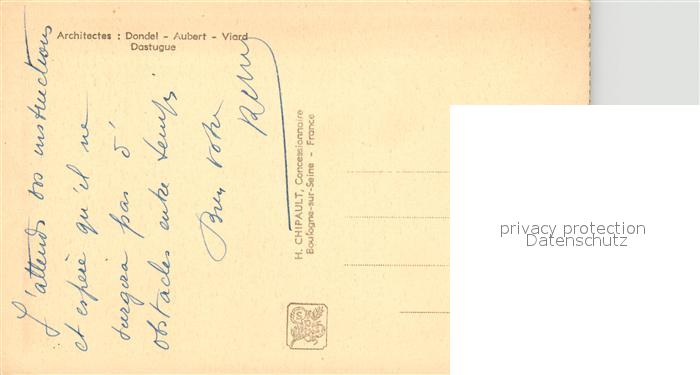 Architectes : Dondel - Aubert - Viard
Dastugue
J'attends vos instructions
et espère qu'il ne
surgira pas d'
obstacles entre temps
Bien votre
H. CHIPAULT, Concessionnaire
Boulogne-sur-Seine - France
privacy protection
Datenschutz